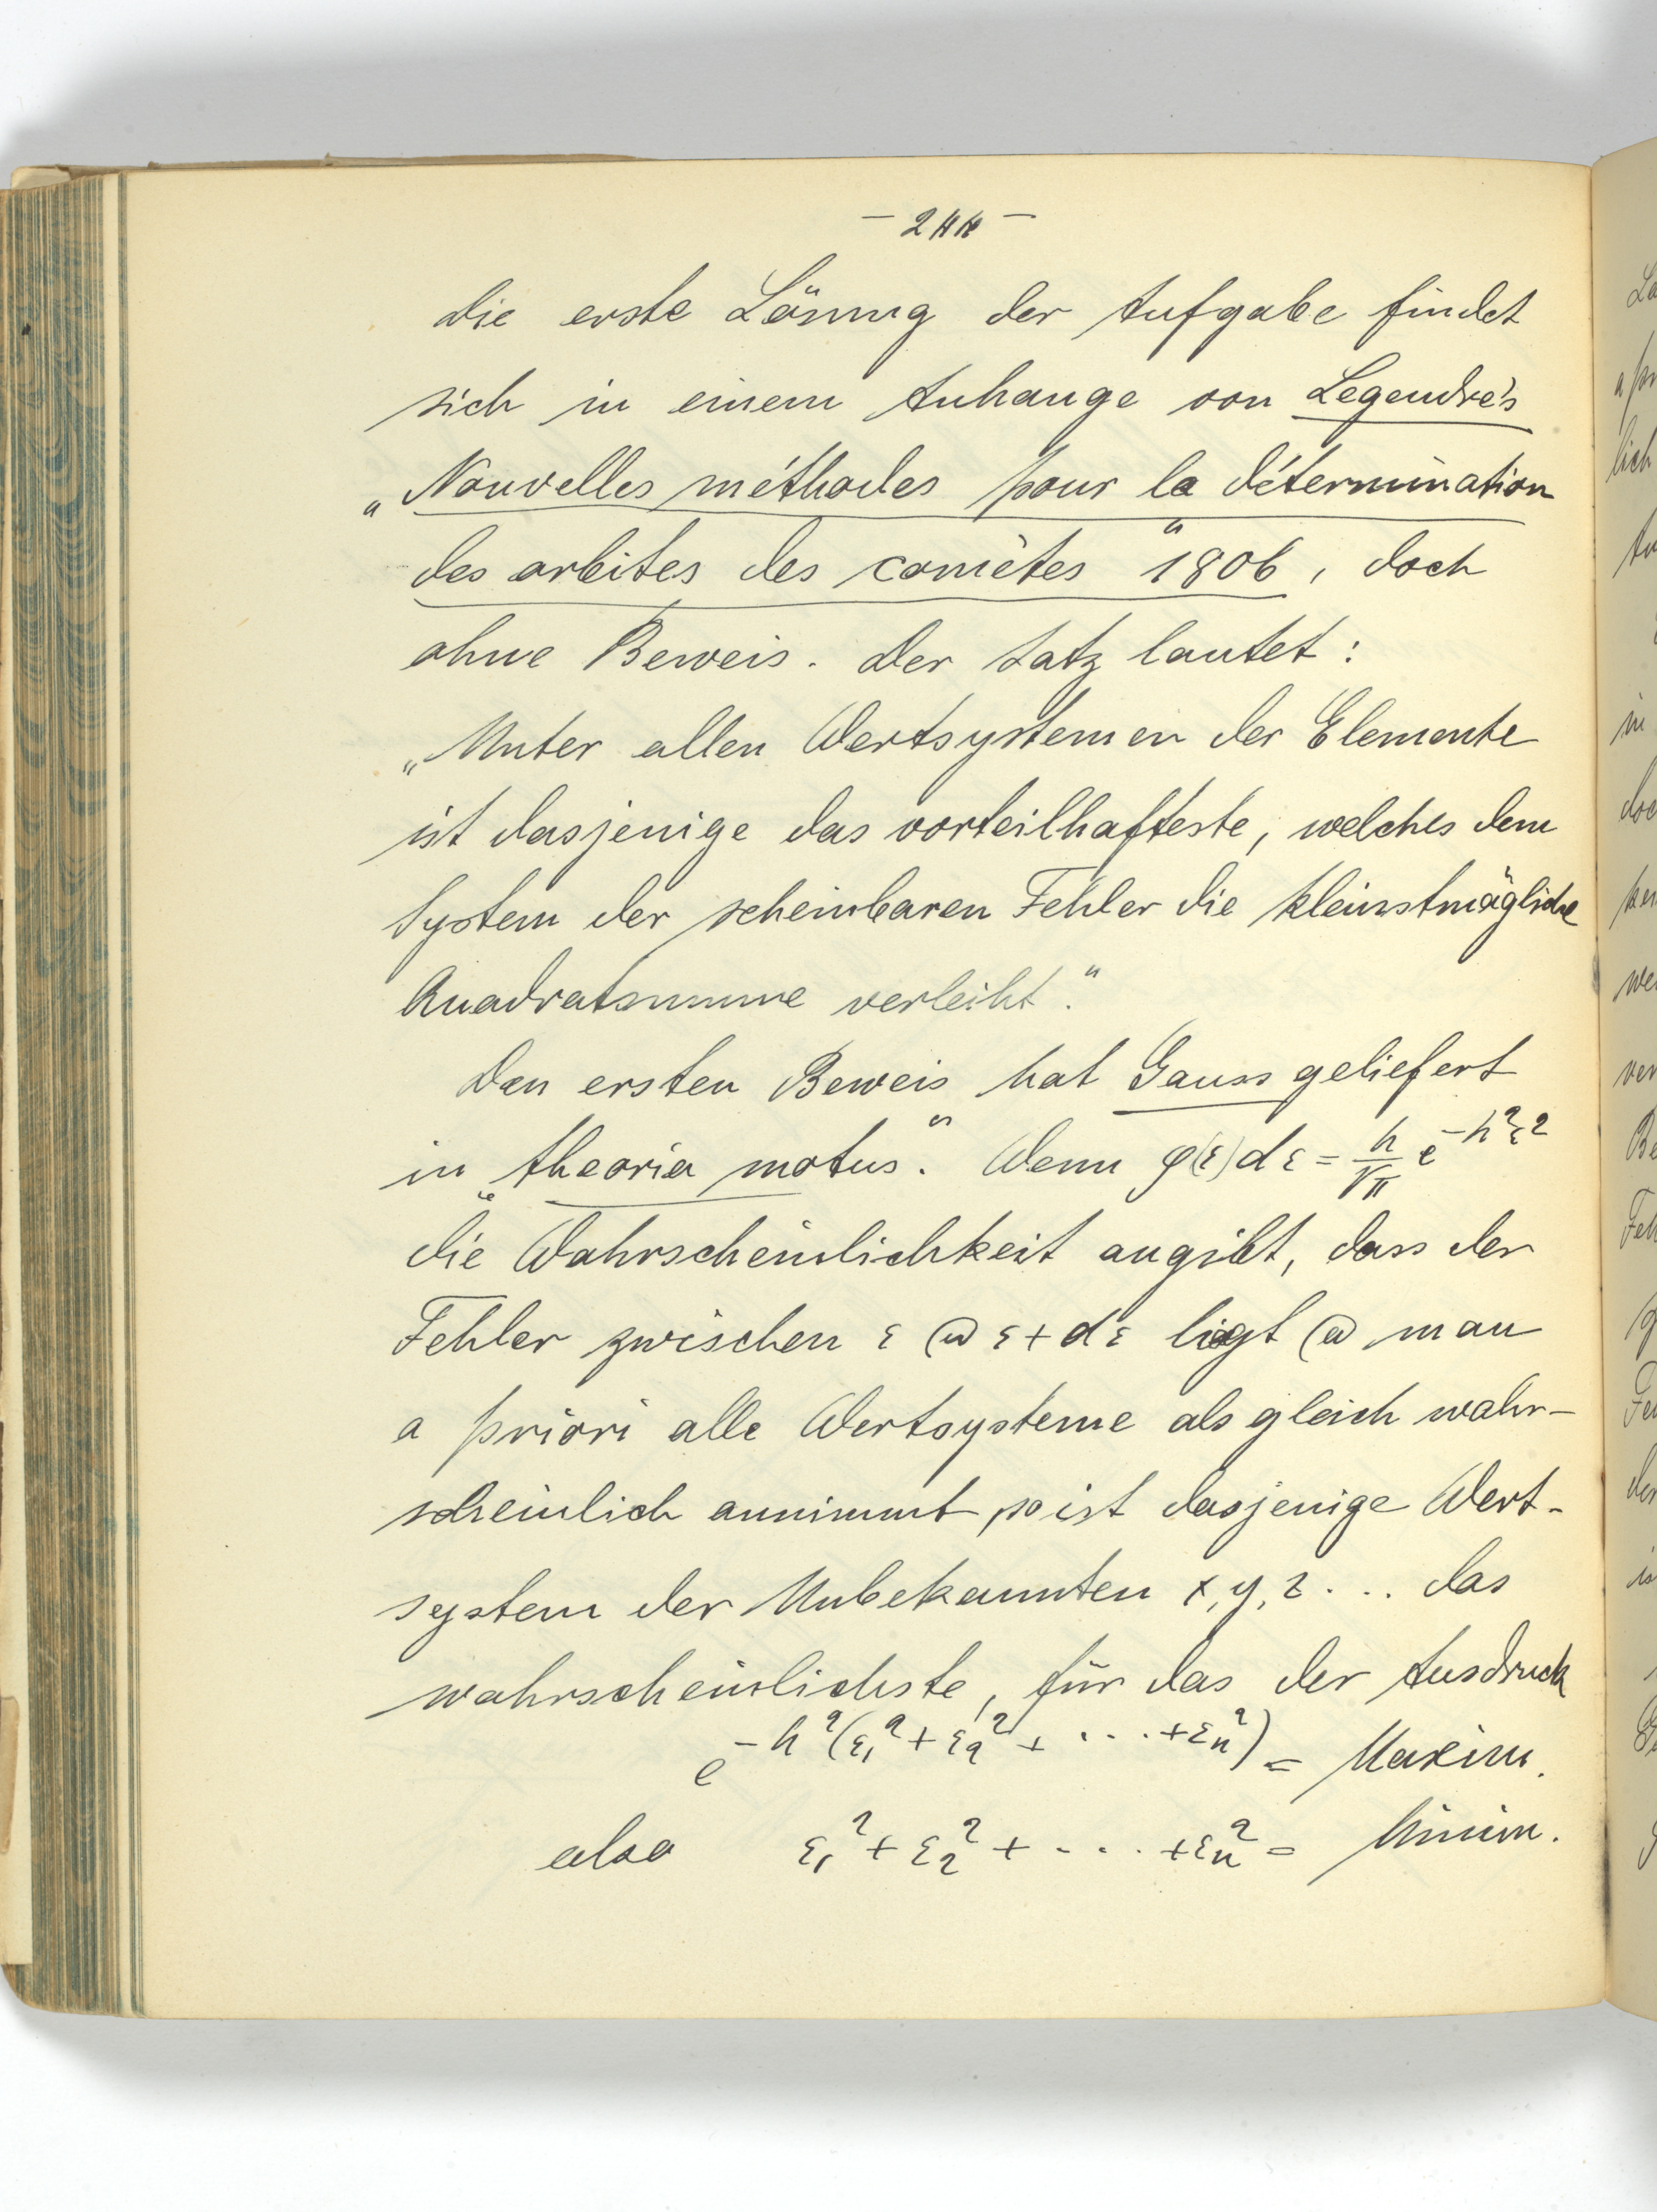 Die erste Lösung der Aufgabe findet
sich in einem Anhange von Legendre's
„Nouvelles méthodes pour la détermination
des orbites des comètes“ 1806, doch
ohne Beweis. Der Satz lautet:
„Unter allen Wertsystemen der Elemente
ist dasjenige das vorteilhafteste, welches dem
System der scheinbaren Fehler die kleinstmögliche
Quadratsumme verleiht.“
Den ersten Beweis hat Gauss geliefert
in „theoria motus“. Wenn φ(ε)dε = h/√π e^{-h²ε²}
die Wahrscheinlichkeit angibt, dass der
Fehler zwischen ε @ ε+dε liegt @ man
a priori alle Wertsysteme als gleich wahr-
scheinlich annimmt, so ist dasjenige Wert-
system der Unbekannten x, y, z ... das
wahrscheinlichste, für das der Ausdruck
e^{-h²(ε₁²+ε₂²+....+εₙ²)} = Maxim.
also ε₁²+ε₂²+....+εₙ² = Minim.